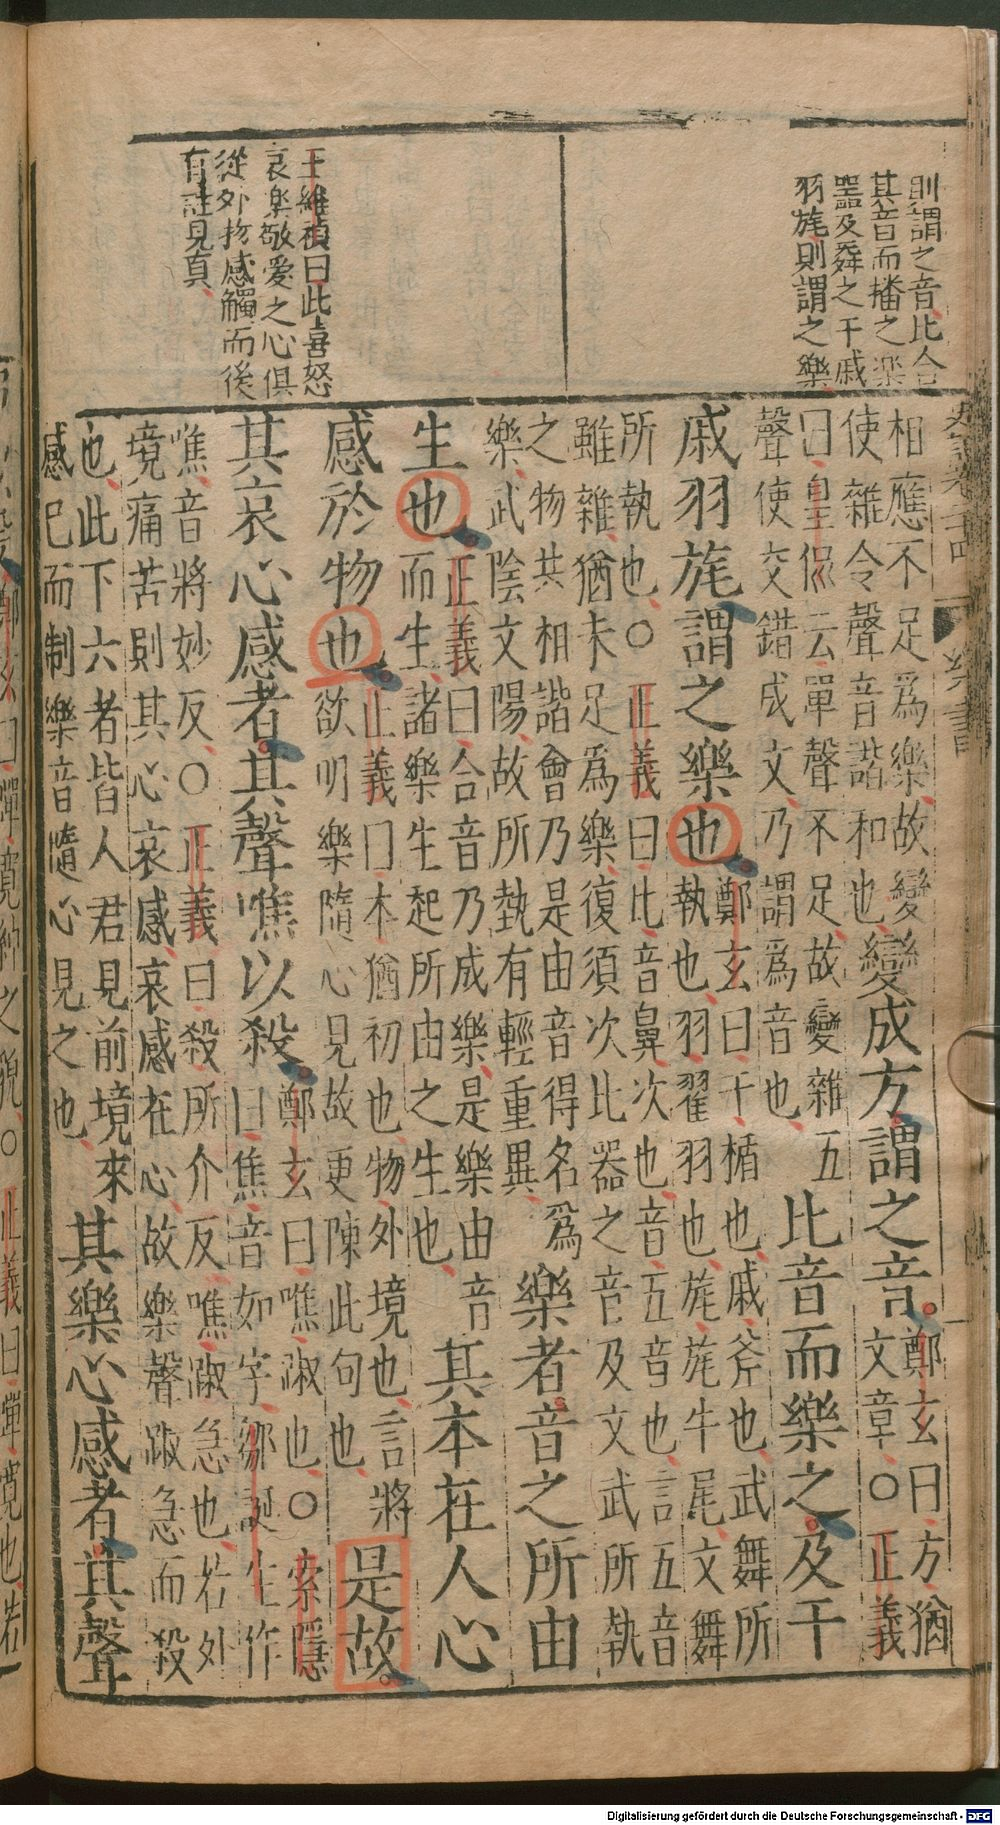 則謂之音比合
其音而播之樂
器及舞之干戚
羽旄則謂之樂
王維禎曰此喜怒
哀樂敬愛之心俱
從外物感觸而後
有註見真
樂書
相應不足爲樂故變
使雜令聲音諧和也
變成方謂之音
鄭玄曰方猶
文章○正義
曰皇侃云單聲不足故變雜五
聲使交錯成文乃謂爲音也
比音而樂之及干
戚羽旄謂之樂也
鄭玄曰干楯也戚斧也武舞所
執也羽翟羽也旄旄牛尾文舞
所執也○正義曰比音鼻次也音五音也言五音
雖雜猶未足爲樂復須次比器之音及文武所執
之物共相諧會乃是由音得名爲
樂武陰文陽故所執有輕重異
樂者音之所由
生也
正義曰合音乃成樂是樂由音
而生諸樂生起所由之生也
其本在人心
感於物也
正義曰本猶初也物外境也言將
欲明樂隨心見故更陳此句也
是故
其哀心感者其聲噍以殺
鄭玄曰噍踧也○索隱
曰焦音如字鄒誕生作
噍音將妙反○正義曰殺所介反噍踧急也若外
境痛苦則其心哀感哀感在心故樂聲踧急而殺
也此下六者皆人君見前境來
感已而制樂音隨心見之也
其樂心感者其聲
Digitalisierung gefördert durch die Deutsche Forschungsgemeinschaft - DFG